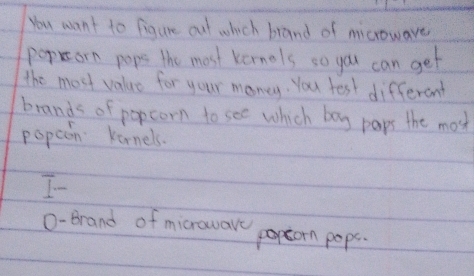 You want to figure out which brand of microwave
popcorn pops the most kernels so you can get
the most value for your money. You test different
brands of popcorn to see which bag pops the most
popcorn kernels.
I-
D-Brand of microwave popcorn pops.